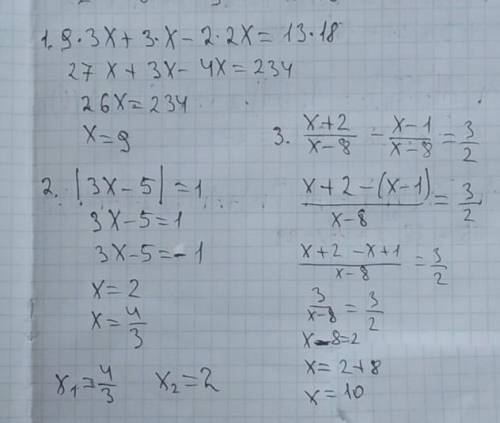 1. 9·3x+3·x-2·2x=13·18
27x+3x-4x=234
26x=234
x=9
2. |3x-5|=1
3x-5=1
3x-5=-1
x=2
x=4/3
x₁=4/3 x₂=2
3. (x+2)/(x-8) - (x-1)/(x-8) = 3/2
(x+2-(x-1))/(x-8) = 3/2
(x+2-x+1)/(x-8) = 3/2
3/(x-8) = 3/2
x-8=2
x=2+8
x=10